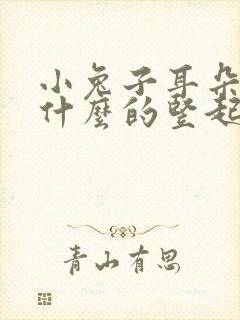 小兔子耳朵
什麼的竪起
青山有思